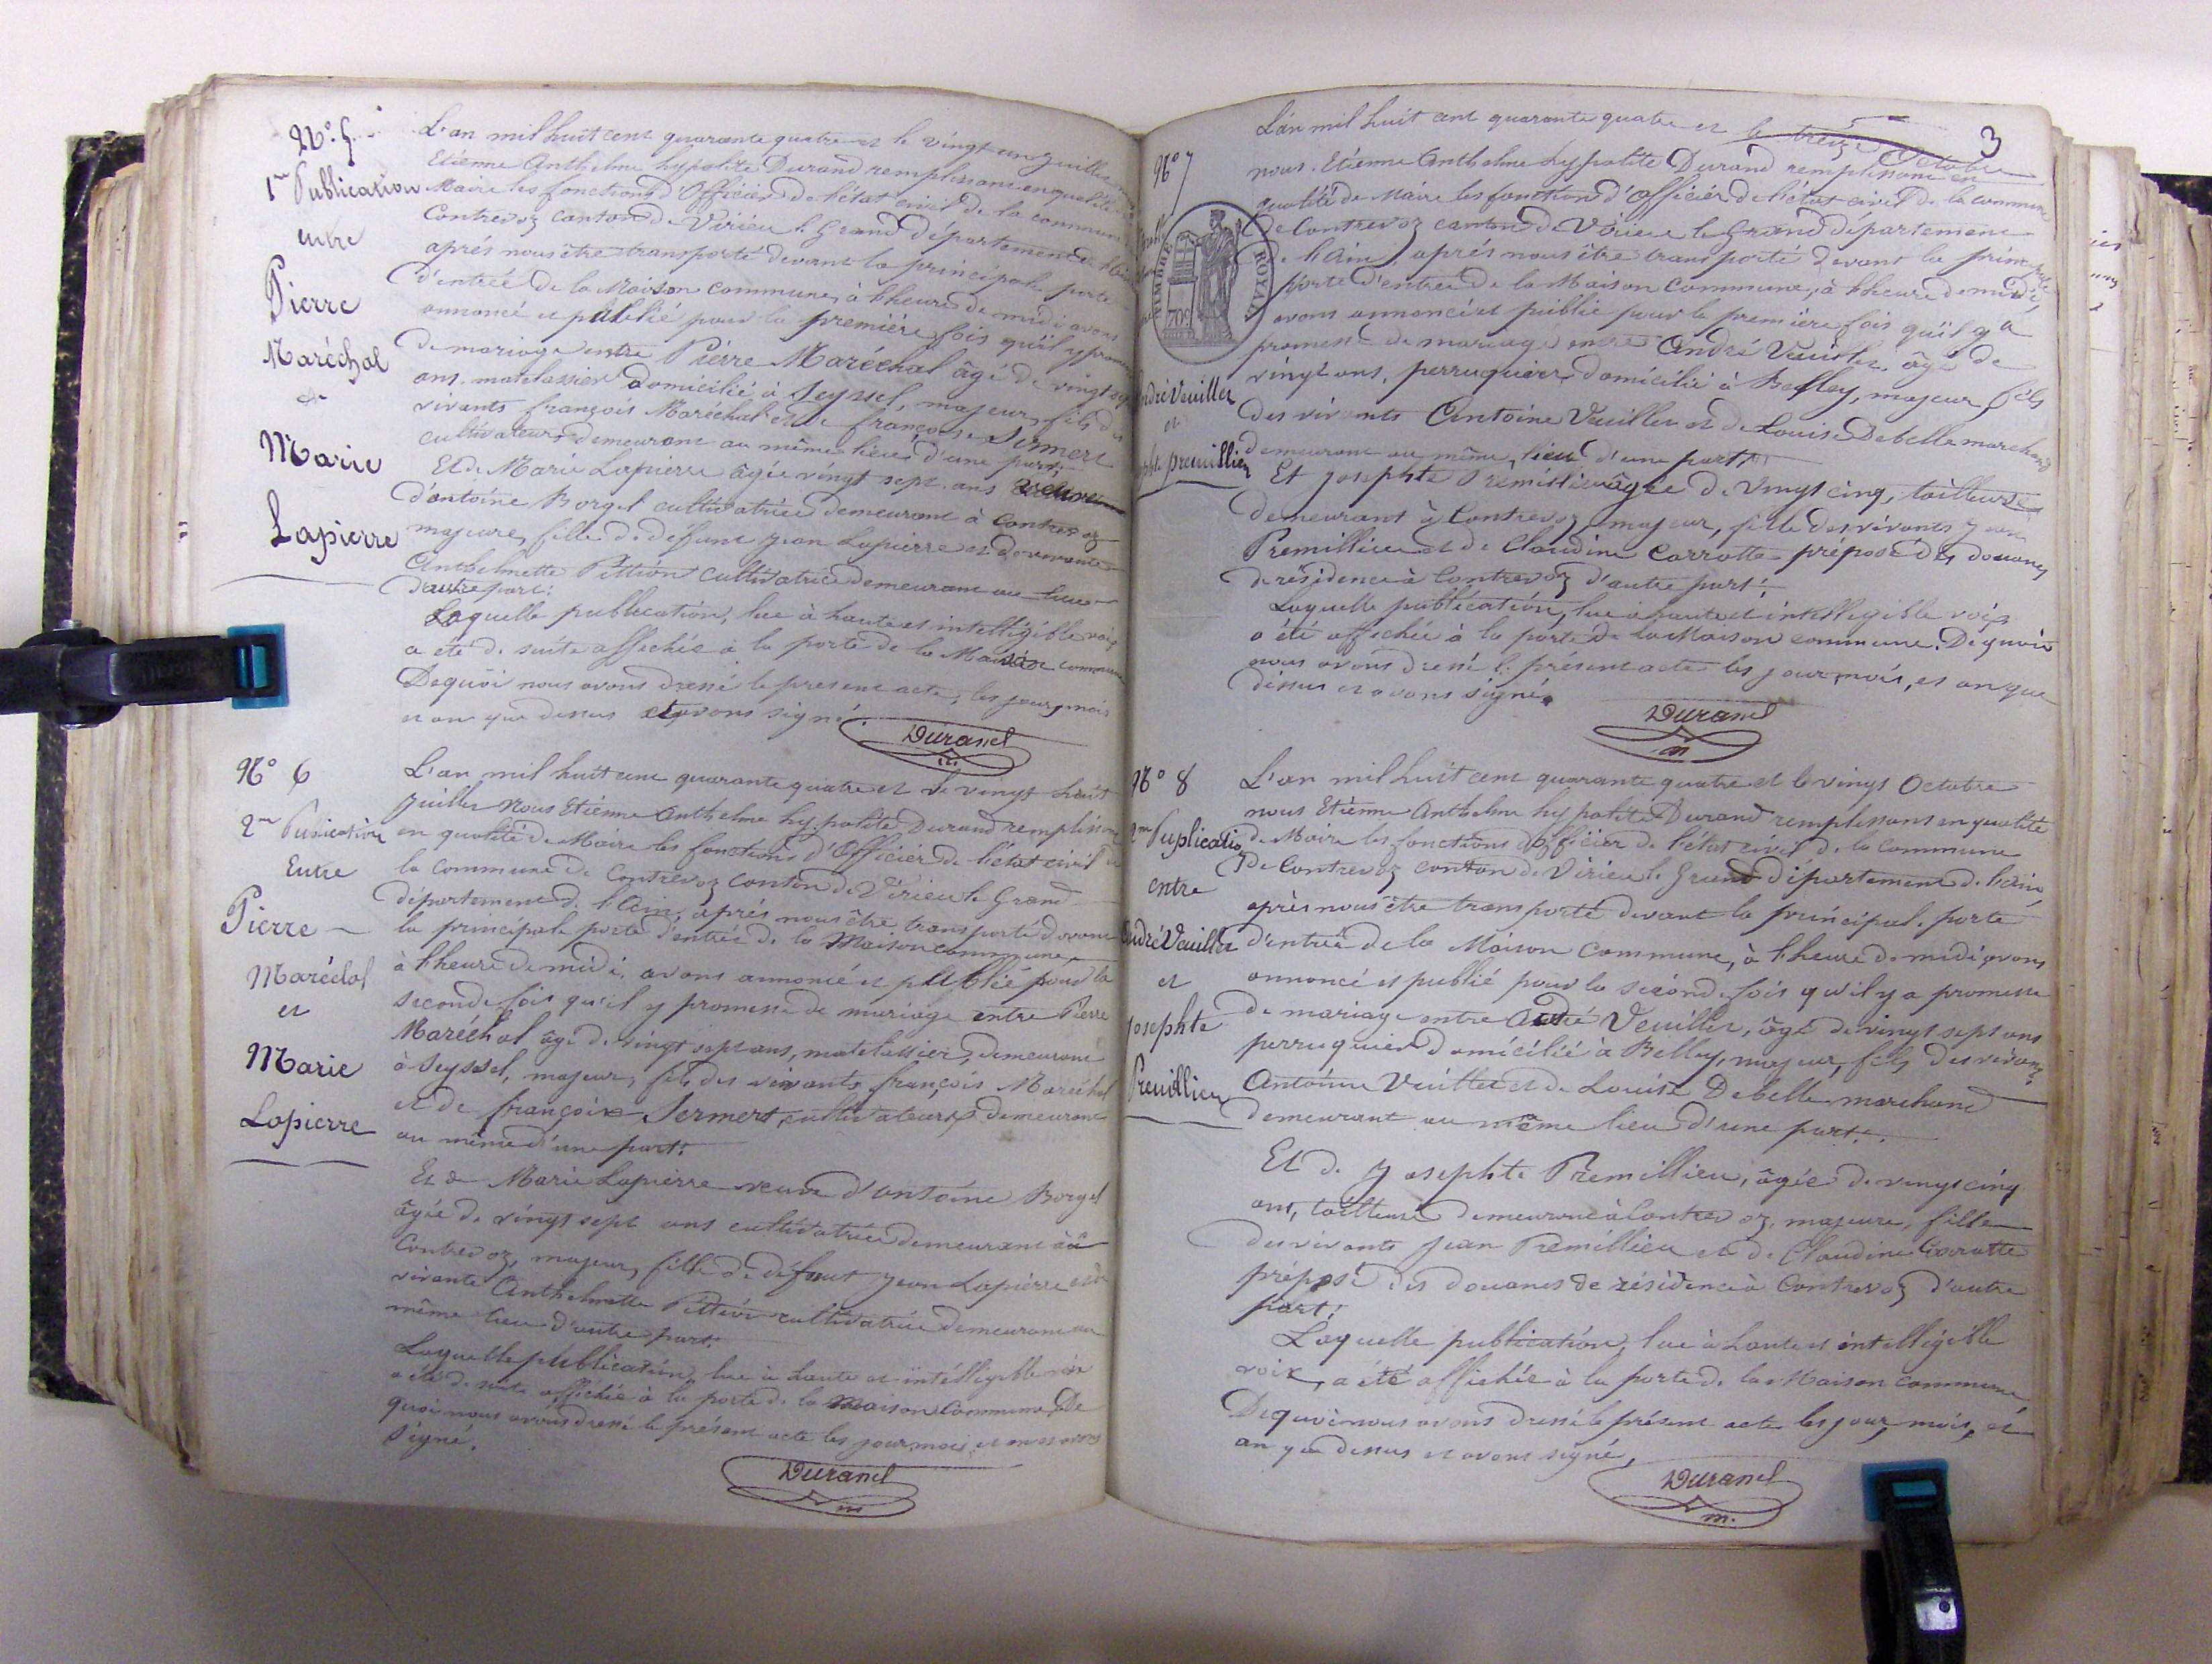 N° 5.
1re Publication
entre
Pierre
Maréchal
et
Marie
Lapierre
L'an mil huit cent quarante quatre et le vingt un juillet
Etienne Anthelme hypolite Durand remplissant en qualité de
Maire les fonctions d'Officier de l'état civil de la commune
Contrevoz canton de Virieu le Grand département de l'ain
aprés nous être transporté devant la principale porte
d'entrée de la Maison commune, à l'heure de midi avons
annoncé et publié pour la première fois qu'il y promesse
de mariage entre Pierre Maréchal âgé de vingt sept
ans, matelassier domicilié à Seyssel, majeur, fils des
vivants françois Maréchal et de françoise Sermert
cultivateurs demeurant au même lieu d'une part;
Et de Marie Lapierre âgée vingt sept ans veuve
d'antoine Borgel cultivatrice demeurant à Contrevoz
majeure, fille de défunt Jean Lapierre et de vivante
Anthelmette Pittion cultivatrice demeurant au lieu
d'autre part;
Laquelle publication, lue à haute et intelligible voix
a été de suite affichée à la porte de la Maison commune
De quoi nous avons dressé le present acte, les jour, mois
et an que dessus et avons signé.
Durand
m.
N° 6
2me Publication
Entre
Pierre
Maréchal
et
Marie
Lapierre
L'an mil huit cent quarante quatre et le vingt huit
juillet Nous Etienne Anthelme hypolite Durand remplissant
en qualité de Maire les fonctions d'Officier de l'état civil de
la commune de Contrevoz canton de Virieu le Grand
département de l'Ain, aprés nous être transporté devant
la principale porte d'entrée de la Maison commune,
à l'heure de midi, avons annoncé et publié pour la
seconde fois qu'il y promesse de mariage entre Pierre
Maréchal âgé de vingt sept ans, matelassier, demeurant
à Seyssel, majeur, fils des vivants françois Maréchal
et de françoise Sermert, cultivateurs demeurant
au même d'une part;
Et de Marie Lapierre veuve d'antoine Borgel
âgée de vingt sept ans cultivatrice demeurant à
Contrevoz, majeur, fille de défunt Jean Lapierre et de
vivante Anthelmette Pittion cultivatrice demeurant au
même lieu d'autre part.
Laquelle publication, lue à haute et intélligible voix
a été de suite affichée à la porte de la Maison Commune. De
quoi nous avons dressé le présent acte les jour, mois et an et avons
signé.
Durand
m
3
N° 7
TIMBRE ROYAL
70c
André Veuillet
et
Josephte Premillieu
L'an mil huit cent quarante quatre et le treize Octobre
nous Etienne Anthelme hypolite Durand remplissant en
qualité de Maire les fonction d'officier de l'état civil de la commune
de Contrevoz canton de Virieu le Grand département
de l'Ain, aprés nous être transporté devant la principale
porte d'entrée de la Maison Commune, à l'heure de midi,
avons annoncé et publié pour la première fois qu'il y a
promesse de mariage entre André Veuillet, âgé de
vingt ans, perruquier, domicilié à Belley, majeur, fils
des vivants Antoine Veuillet et de Louise Debelle marchand
demeurant au même, lieu d'une part;
Et Josephte Premillieu âgée de vingt cinq, tailleuse
demeurant à Contrevoz, majeur, fille des vivants Jean
Premillieu et de Claudine Carrotte préposé des douanes
de résidence à Contrevoz d'autre part;
Laquelle publication, lue à haute et intelligible voix,
a été affichée à la porte de la Maison commune. De quoi
nous avons dressé le présent acte les jour, mois, et an que
dessus et avons signé.
Durand
m
N° 8
2me Puplication
entre
André Veuillet
et
Josephte
Premillieu
L'an mil huit cent quarante quatre et le vingt Octobre
nous Etienne Anthelme hypolite Durand remplissant en qualité
de Maire les fonctions d'officier de l'état civil de la commune
de Contrevoz canton de Virieu le Grand département de l'ain,
après nous être transporté devant la principale porte
d'entrée de la Maison Commune, à l'heure de midi, avons
annoncé et publié pour la seconde fois qu'il y a promesse
de mariage entre André Veuillet, âgé de vingt sept ans
perruquier domicilié à Belley, majeur, fils des vivants
Antoine Veuillet et de Louise Debelle marchand
demeurant au même lieu d'une part.
Et de Josephte Premillieu, âgée de vingt cinq
ans, tailleuse demeurant à Contrevoz, majeure, fille
des vivants Jean Premillieu et de Claudine Carrotte
préposé des douanes de résidence à Contrevoz d'autre
part;
Laquelle publication, lue à haute et intelligible
voix, a été affichée à la porte de la Maison commune
De quoi nous avons dressé le présent acte les jour, mois, et
an que dessus et avons signé,
Durand
m.